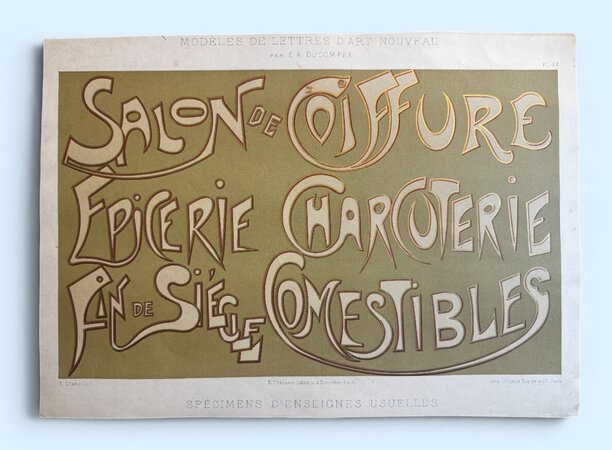 MODÈLES DE LETTRES D'ART NOUVEAU
PAR E. A. DUCOMPEX
SALON DE COIFFURE
EPICERIE CHARCUTERIE
FIN DE SIÈCLE COMESTIBLES
SPÉCIMENS D'ENSEIGNES USUELLES